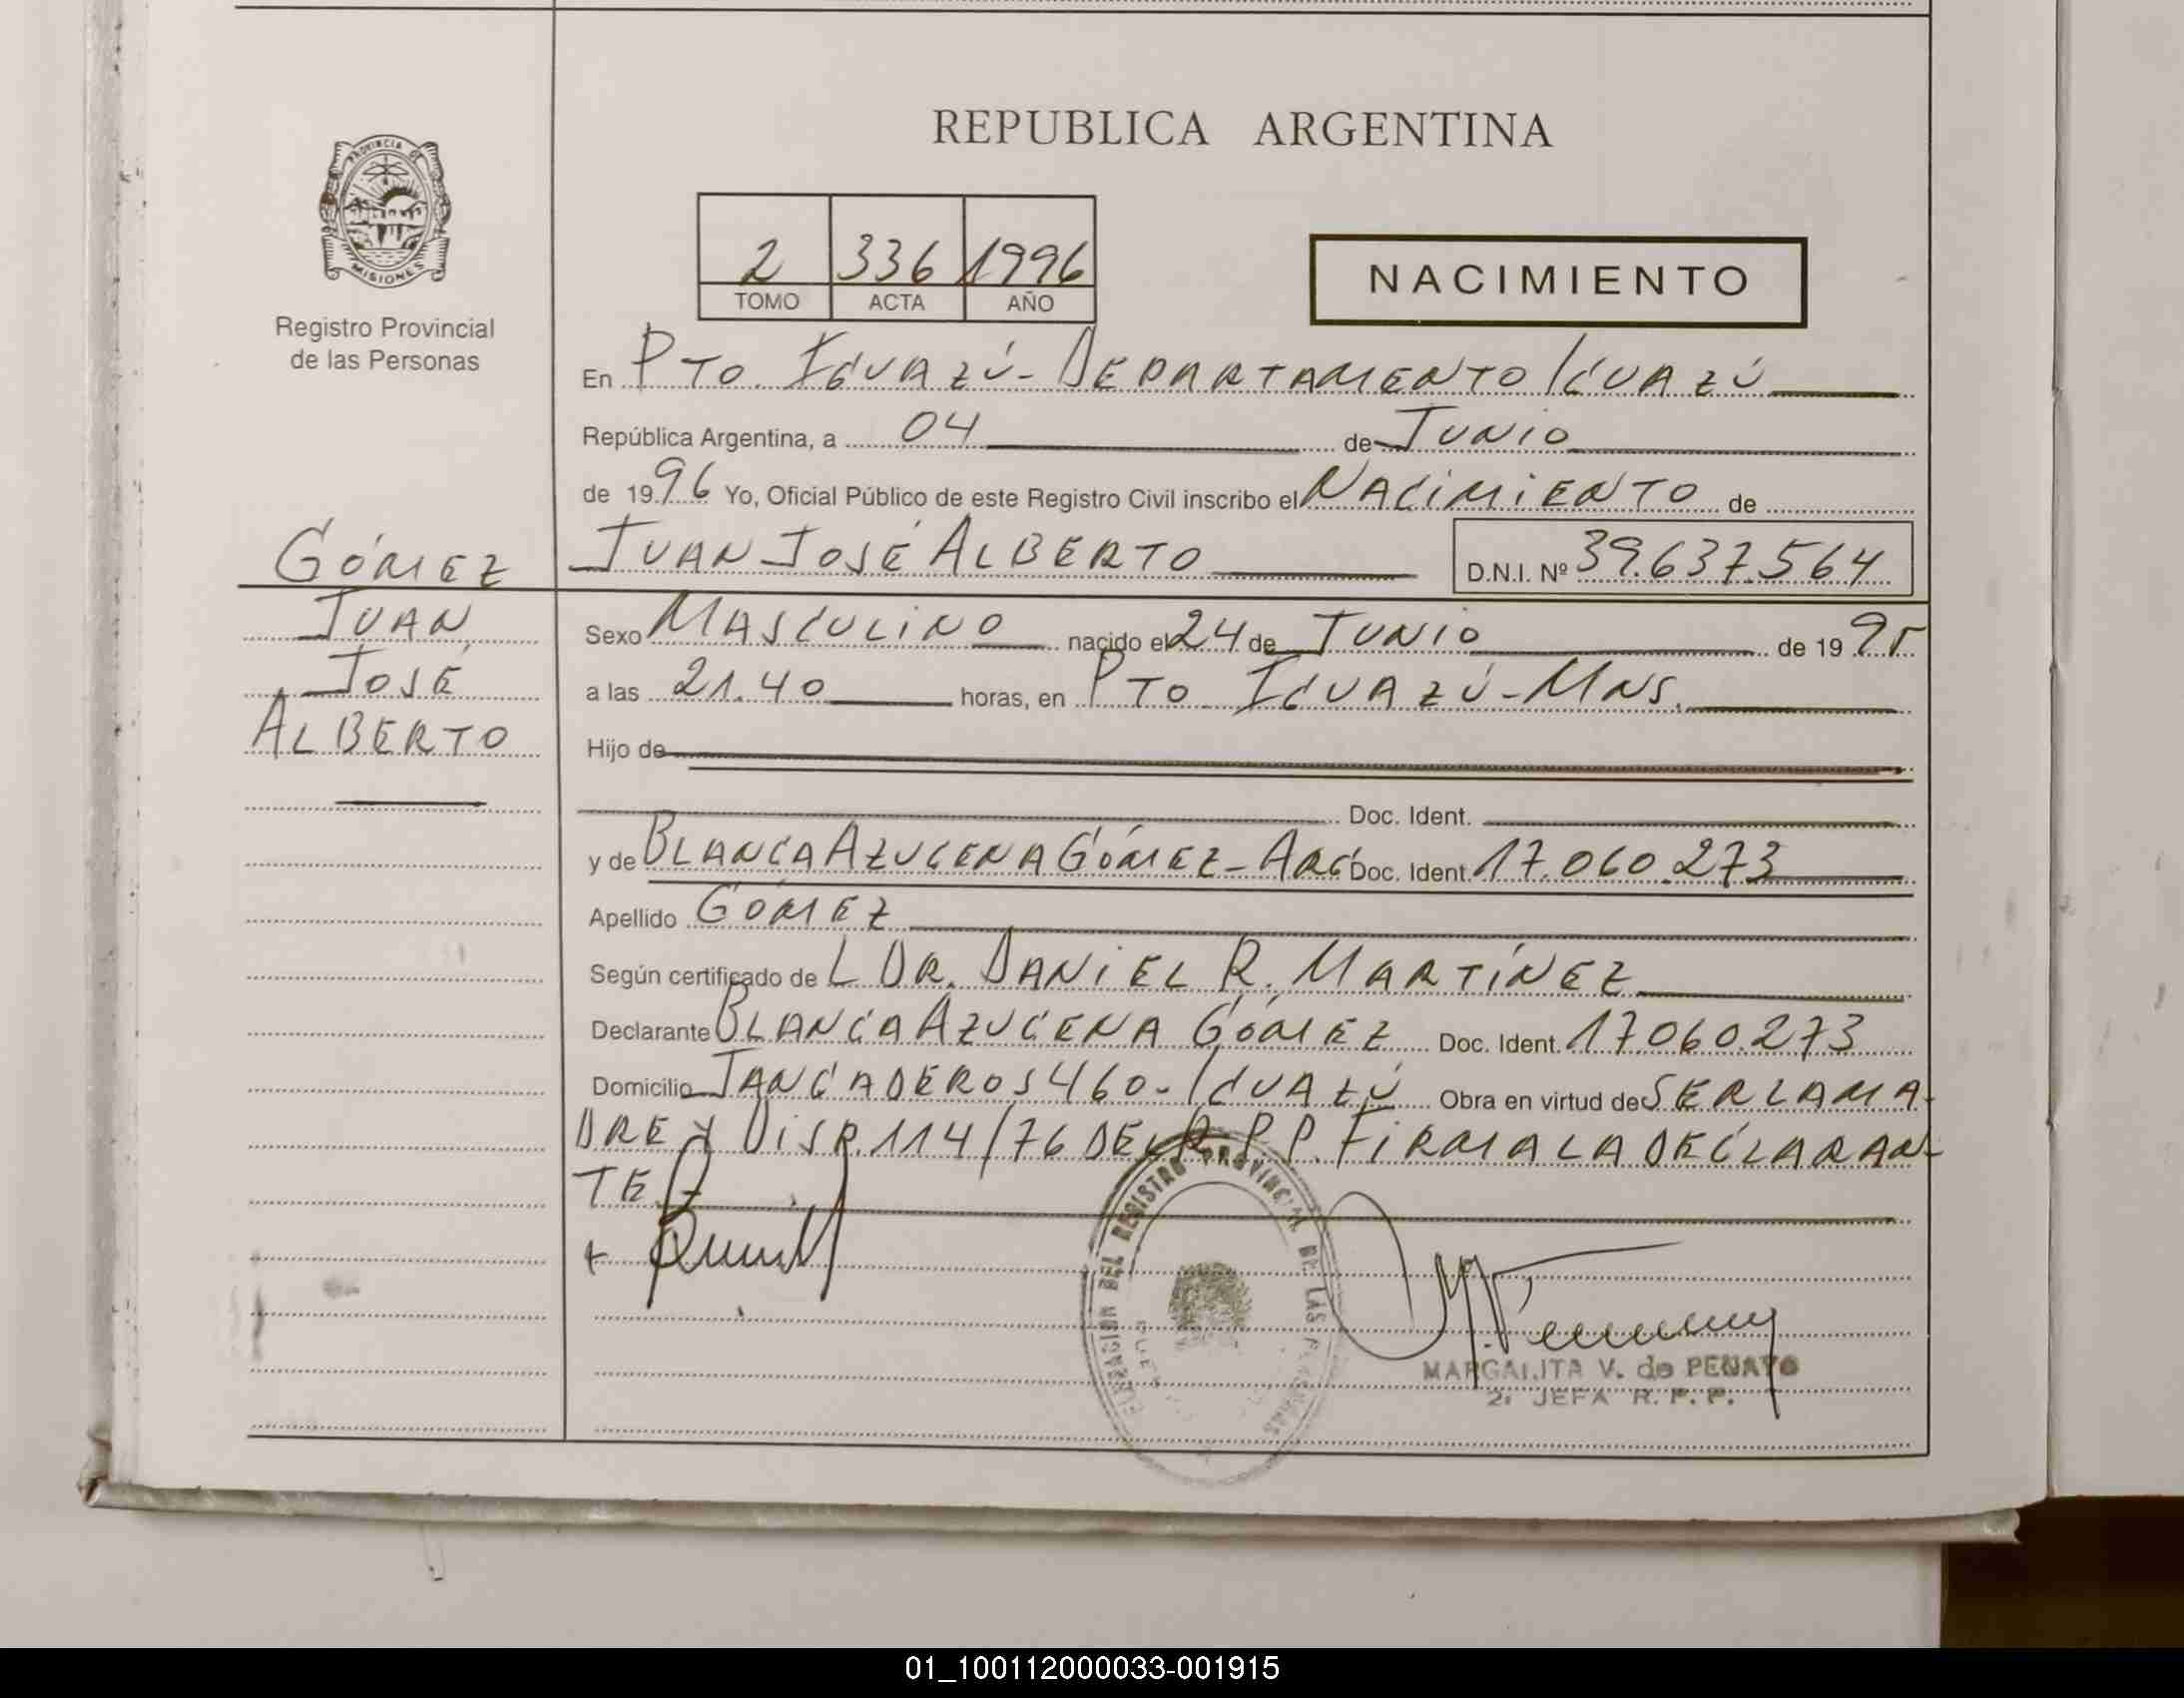 REPUBLICA ARGENTINA
PROVINCIA DE
MISIONES
Registro Provincial
de las Personas
2 336 1996
TOMO ACTA AÑO
NACIMIENTO
En PTO. IGUAZÚ - DEPARTAMENTO IGUAZÚ
República Argentina, a 04 de JUNIO
de 1996 Yo, Oficial Público de este Registro Civil inscribo el NACIMIENTO de
GÓMEZ
JUAN
JOSÉ
ALBERTO
JUAN JOSÉ ALBERTO D.N.I. Nº 39.637.564
Sexo MASCULINO nacido el 24 de JUNIO de 1995
a las 21.40 horas, en PTO IGUAZÚ - MNS.
Hijo de
Doc. Ident.
y de BLANCA AZUCENA GÓMEZ - ARG Doc. Ident. 17.060.273
Apellido GÓMEZ
Según certificado de L DR. DANIEL R. MARTÍNEZ
Declarante BLANCA AZUCENA GÓMEZ Doc. Ident. 17.060.273
Domicilio TANGADEROS 460 - IGUAZÚ Obra en virtud de SER LA MA-
DRE Y DISP. 114/76 DEL R.P.P. FIRMA LA DECLARAN-
TE
DEL REGISTRO PROVINCIAL DE LAS
MARGARITA V. de PENAYO
2. JEFA R. P. P.
01_100112000033-001915